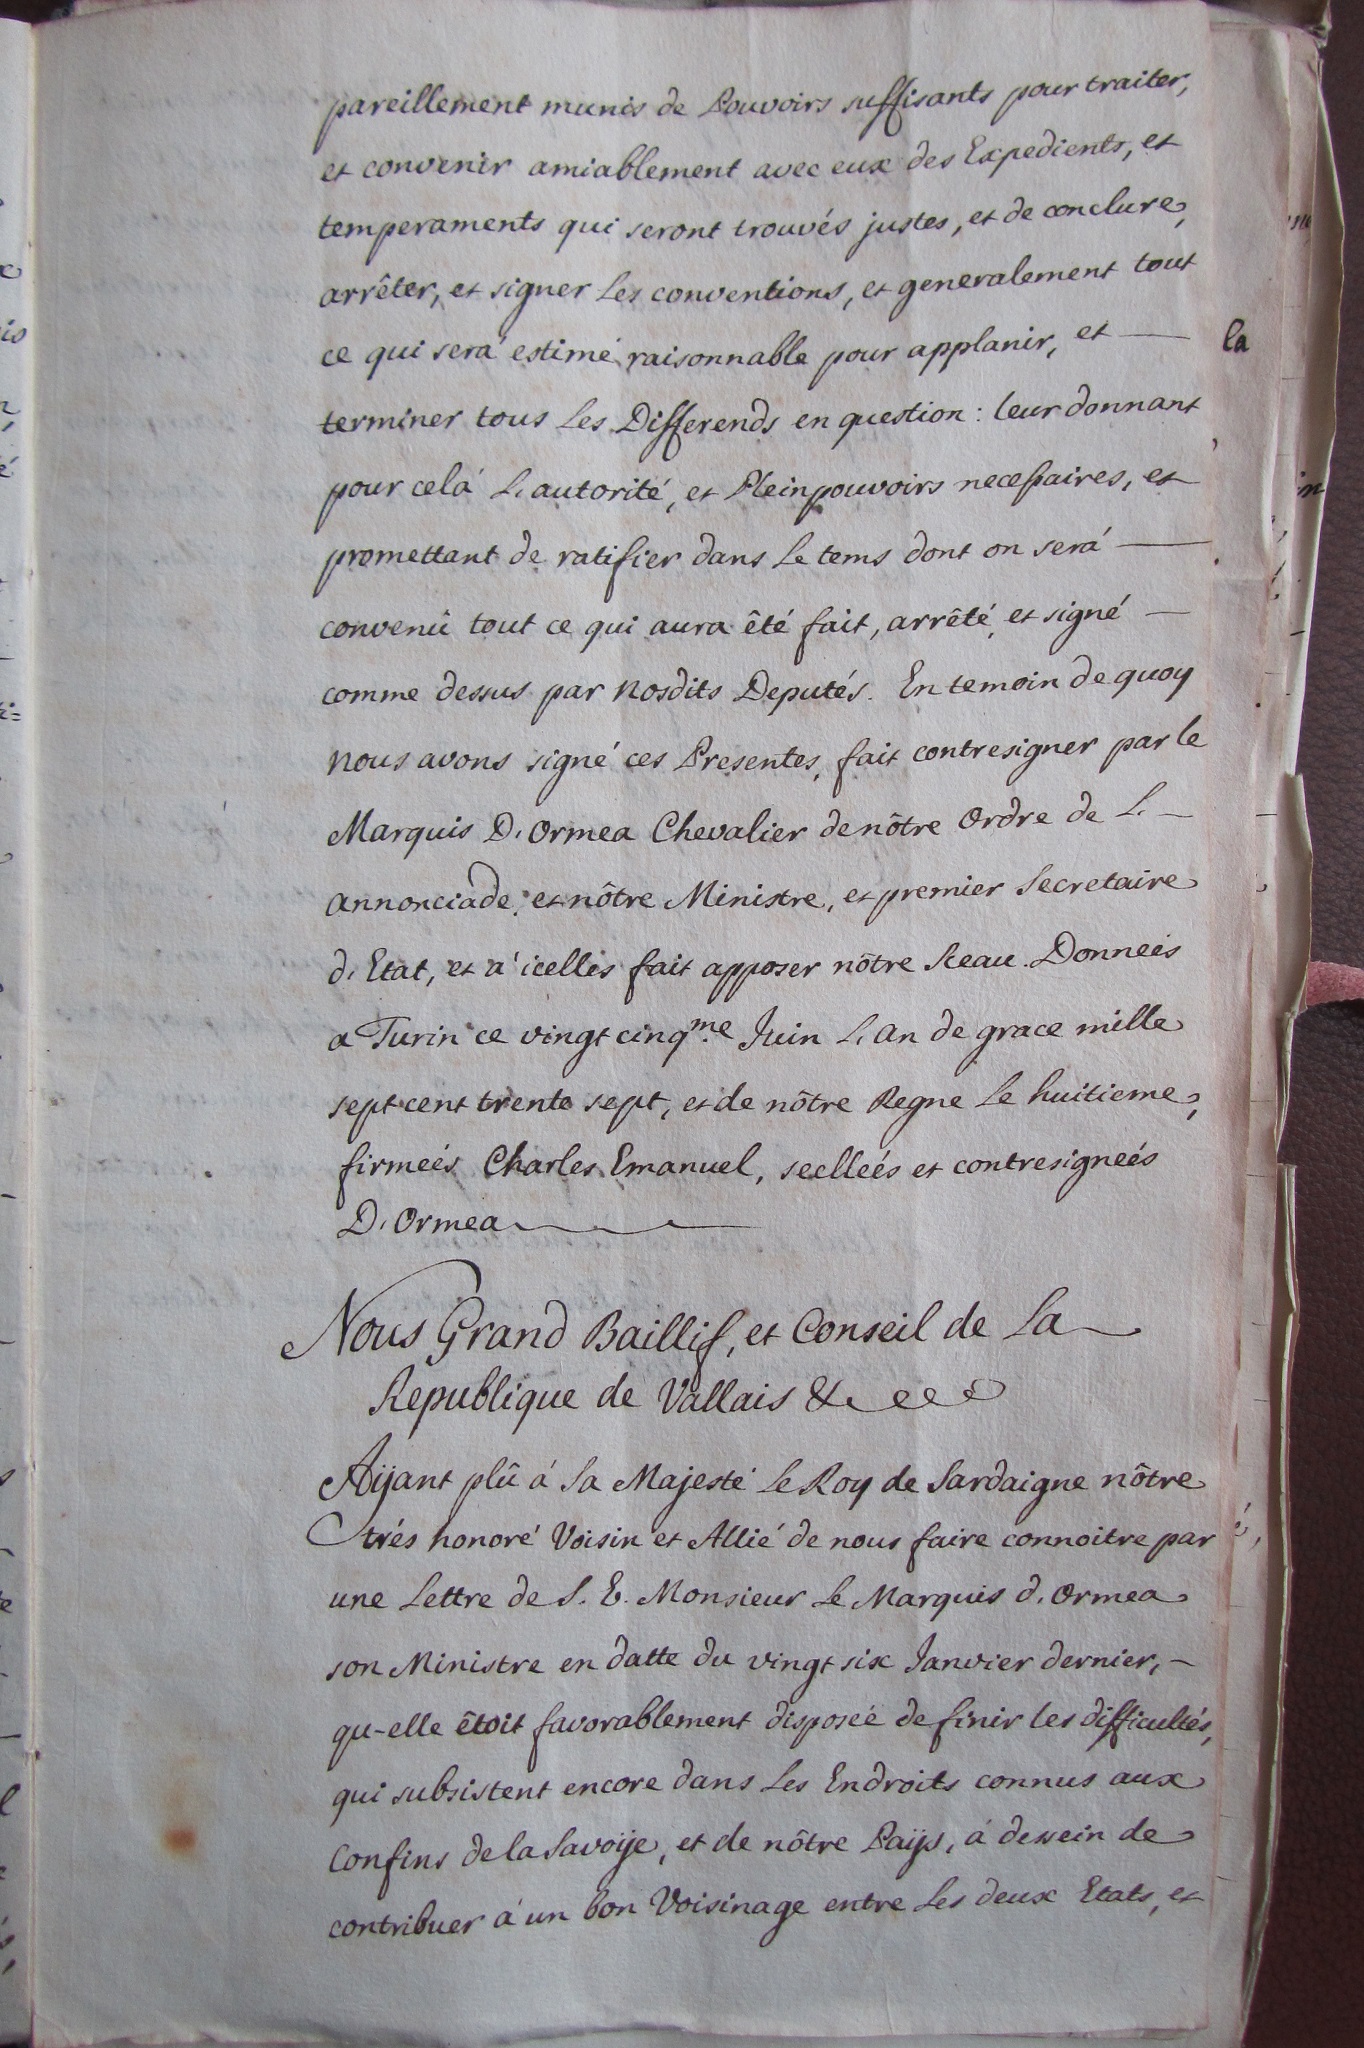 pareillement munis de Pouvoirs suffisants pour traiter,
et convenir amiablement avec eux des Expedients, et
temperaments qui seront trouvés justes, et de conclure,
arrêter, et signer les conventions, et generalement tout
ce qui serà estimé raisonnable pour applanir, et —
terminer tous les Differends en question : leur donnant
pour celà L'autorité, et Pleinpouvoirs necessaires, et
promettant de ratifier dans le tems dont on serà —
convenü tout ce qui aura êté fait, arrêté, et signé —
comme dessus par Nosdits Deputés. En temoin de quoy
Nous avons signé ces Presentes, fait contresigner par le
Marquis D'Ormea Chevalier de nôtre Ordre de L' —
annonciade, et nôtre Ministre, et premier Secretaire
d'Etat, et à icelles fait apposer nôtre Sceau. Donneés
a Turin ce vingt cinq.me Juin L'an de grace mille
sept cent trente sept, et de nôtre Regne le huitieme,
firmeés Charles Emanuel, seelleés et contresigneés
D'Ormea
Nous Grand Baillif, et Conseil de La
Republique de Vallais &
Aÿant plû à Sa Majesté le Roy de Sardaigne nôtre
trés honoré Voisin et Allié de nous faire connoitre par
une Lettre de S. E. Monsieur le Marquis d'Ormea
son Ministre en datte du vingt six Janvier dernier, —
qu-elle êtoit favorablement disposeé de finir les difficultés,
qui subsistent encore dans les Endroits connus aux
Confins de la Savoÿe, et de nôtre Paÿs, à dessein de
contribuer à un bon Voisinage entre les deux Etats, et
la